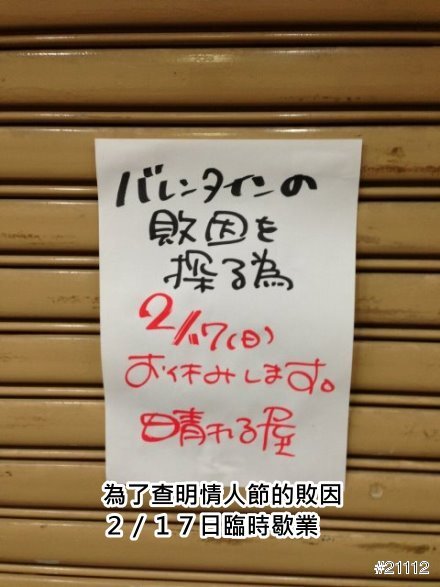 バレンタインの
敗因を
探る為
2/17(日)
お休みします。
晴れる屋
為了查明情人節的敗因
2/17日臨時歇業
#21112